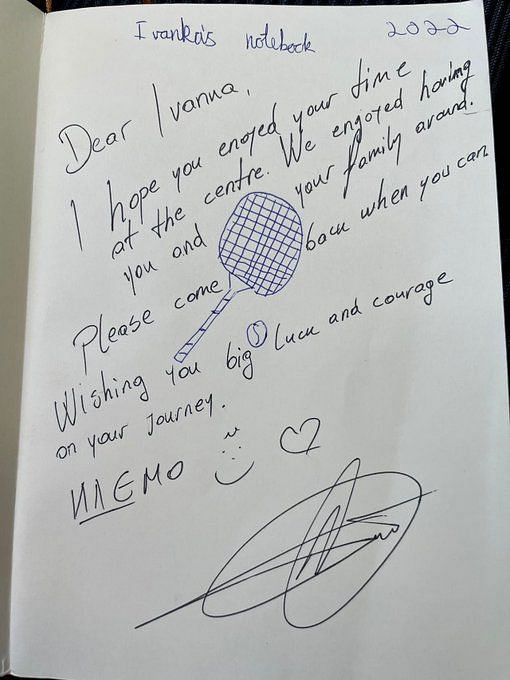 Ivanka's notebook 2022
Dear Ivanna,
I hope you enoyed your time
at the centre. We engoyed having
you and your family around.
Please come back when you can
Wishing you big luck and courage
on your journey.